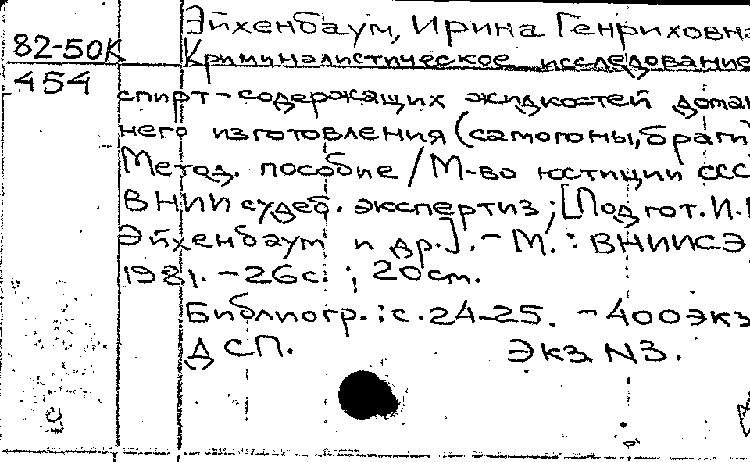 Эйхенбаум, Ирина Генриховна
82-50К
Криминалистическое исследование
454
спирт-содержащих жидкостей домаш
него изготовления (самогоны, браги
Метод. пособие / М-во юстиции ССС
ВНИИ судеб. экспертиз; [Подгот. И.Г
Эйхенбаум и др.]. - М.: ВНИИСЭ,
1981. - 26с. ; 20см.
Библиогр.: с. 24-25. - 400экз
ДСП. Экз N3.